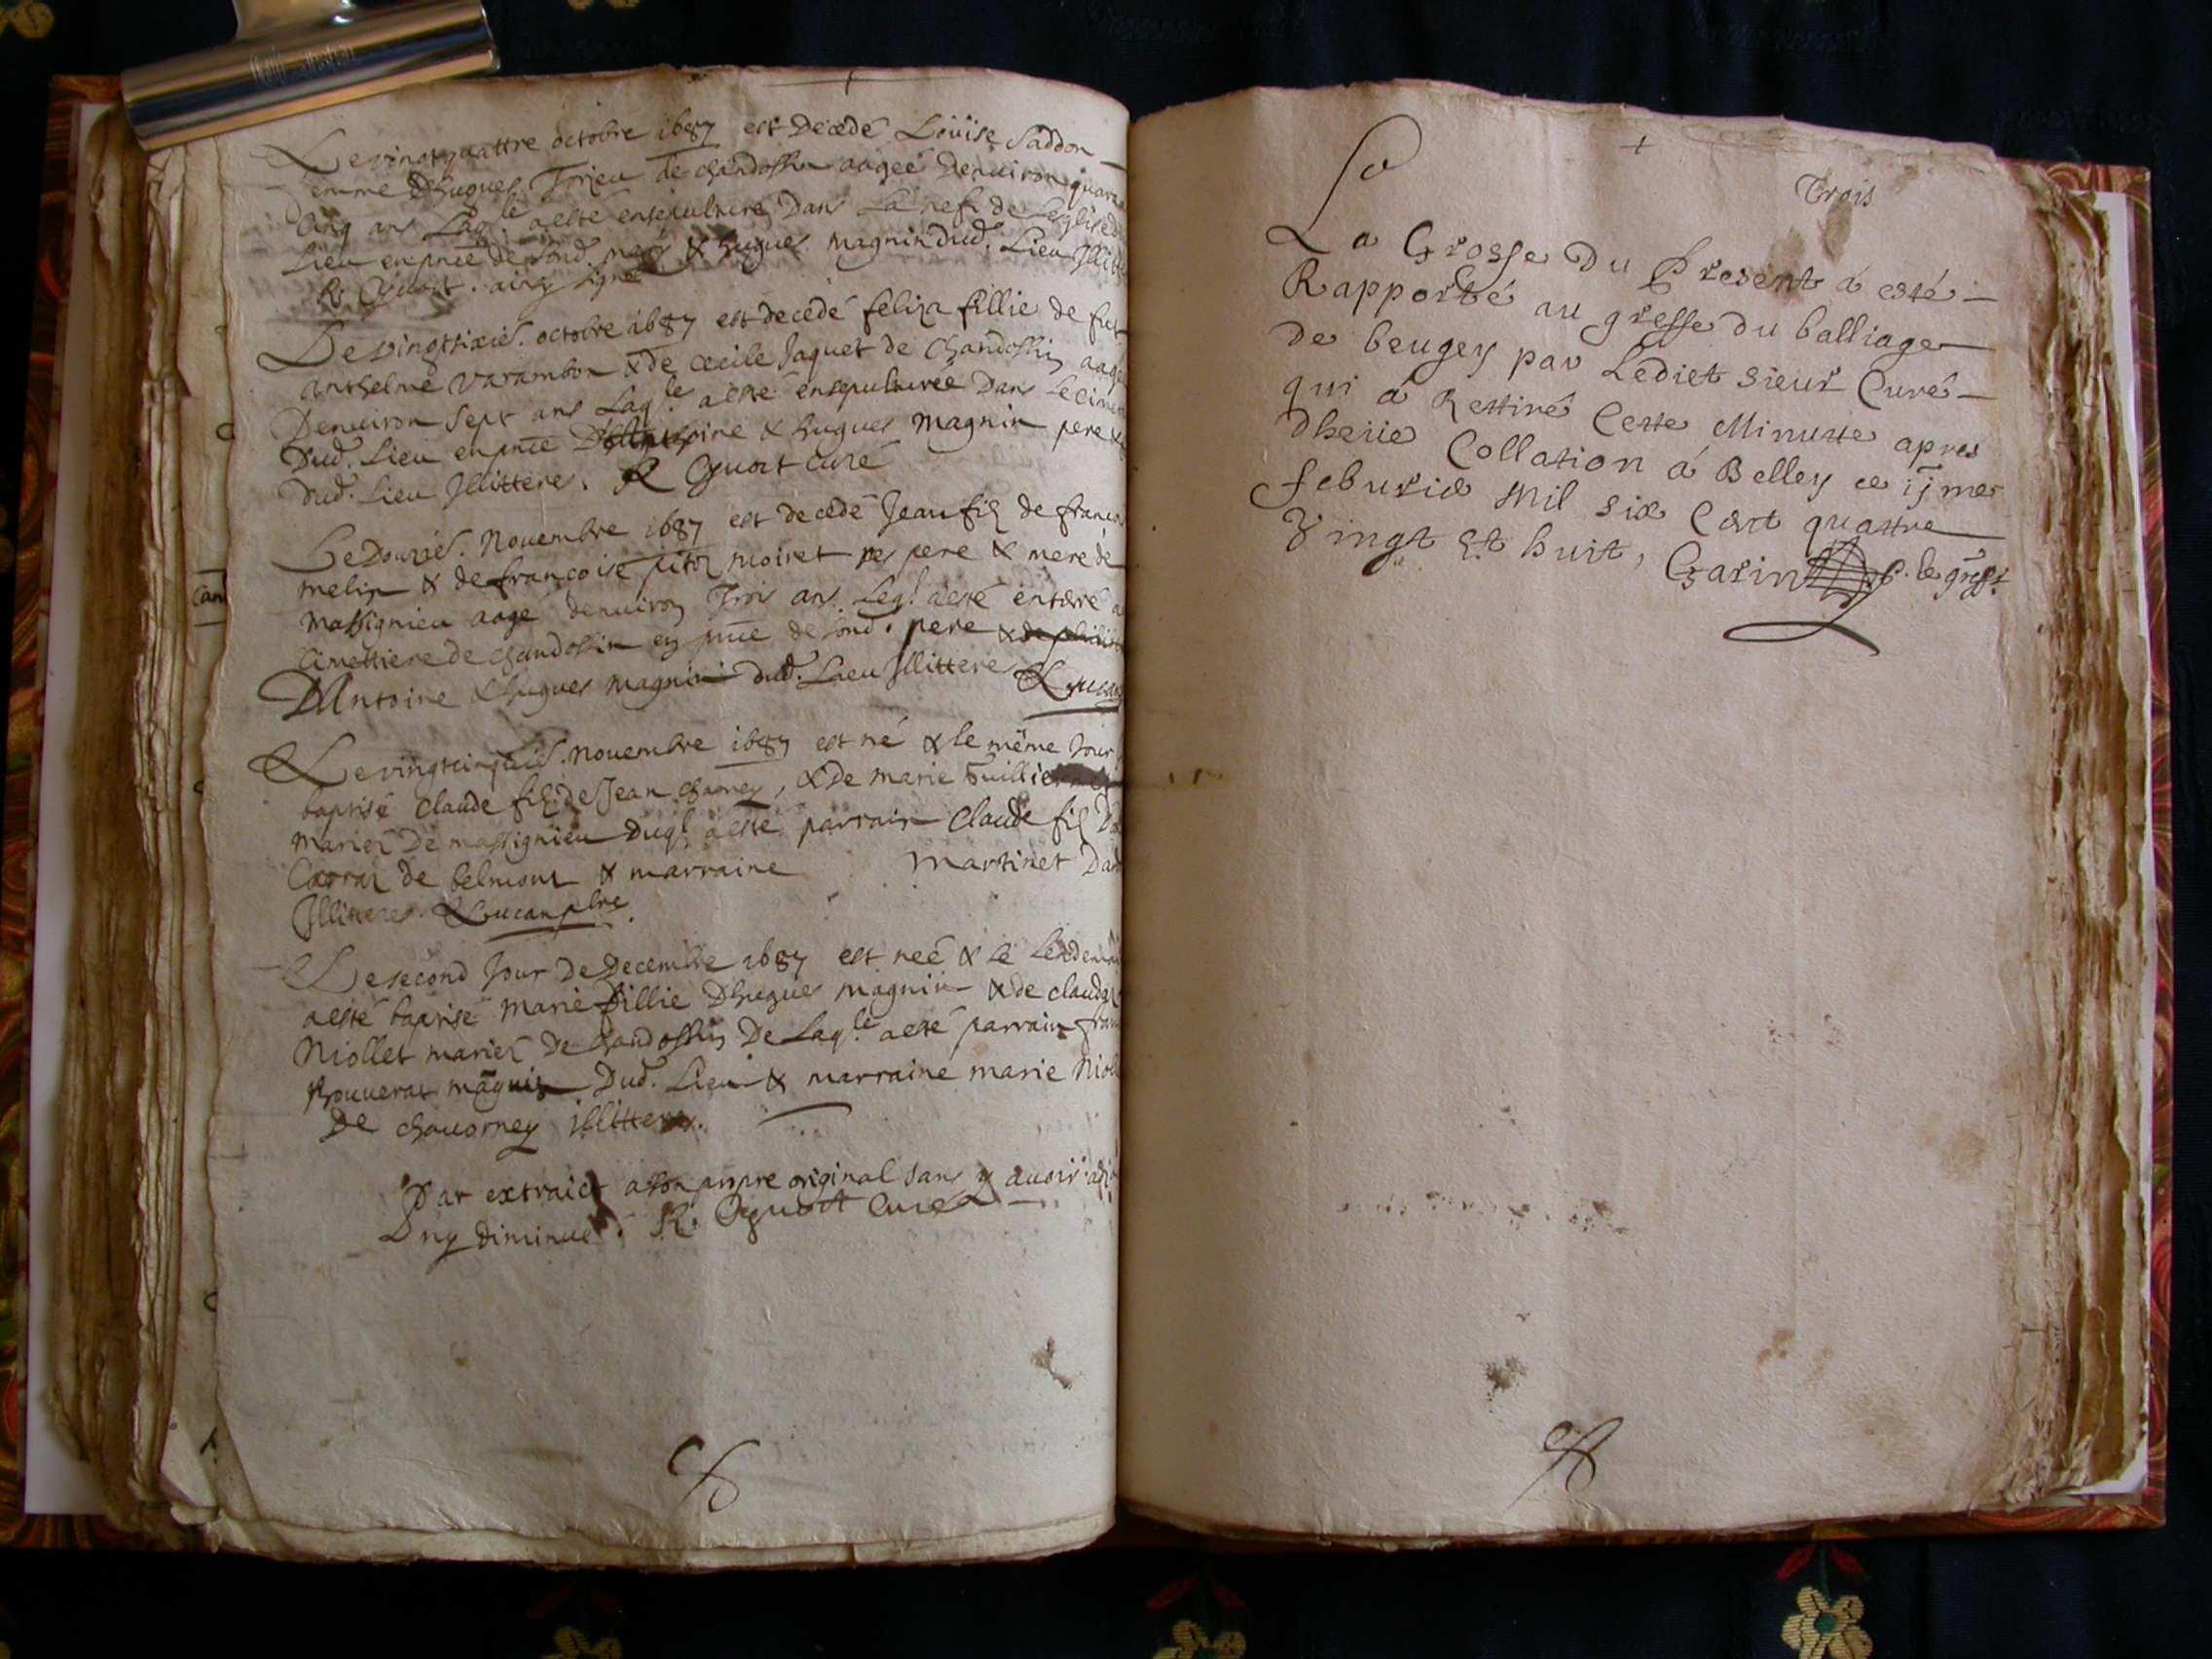 Le vingtquattre octobre 1687 est decedé Loüise Saddon
emme dhugues Torieu de chandossin aagée denuiron quara
cinq ans Laq.le a esté ensepulturée dans La nef de Leglise d
Lieu en pnce de sond. mary & hugues magnin dud. Lieu Jllitt
R. Cyuoct . ainsy signé
Le vingtsixie. octobre 1687 est decedé feliza fillie de
anthelme varambon & de cecile Jaquet de chandossin aag
Denuiron sept ans Laq.le a esté ensepulturée dans Le cime
Dud. Lieu en pnce D'Anthoine & hugues magnin pere &
Dud. Lieu Jllittere. R Cyuoct curé
Le Douzie. Nouembre 1687 est decedé Jean filz de franco
melin & de francoise moiret ses pere & mere de
Massignieu aage denuiron Trois ans Leq.l a esté entéré a
Cimettiere de chandossin en pnce de sond. pere
D'Antoine & hugues magnin dud. Lieu Jllittere
Le vingtcinquie. nouembre 1687 est né & le même Jour
baptisé claude filz de Jean charvey, & de marie
mariez De massignieu duq.l a esté parrain claude filz
de belmont & marraine martinet
Jllitteres
Le second Jour de decembre 1687 est neé & le Lendem
a esté baptisé marie fillie Dhugues magnin & de claud
Niollet mariez De chandossin De Laq.le a esté parrain fran
magnin Dud. Lieu & marraine marie Niol
De chauorney illittere.
Par extraict a son propre original sans y auoir
ny diminué. R. Cyuoct curé
can
Trois
La Grosse du Present a esté
Rapporté au greffe du balliage
de beugey par Lediet sieur Curé
qui a Rettiré Cette Minutte apres
dheüe Collation a Belley ce ij me
feburier Mil six Cent quattre
Vingt Et huit, Garin